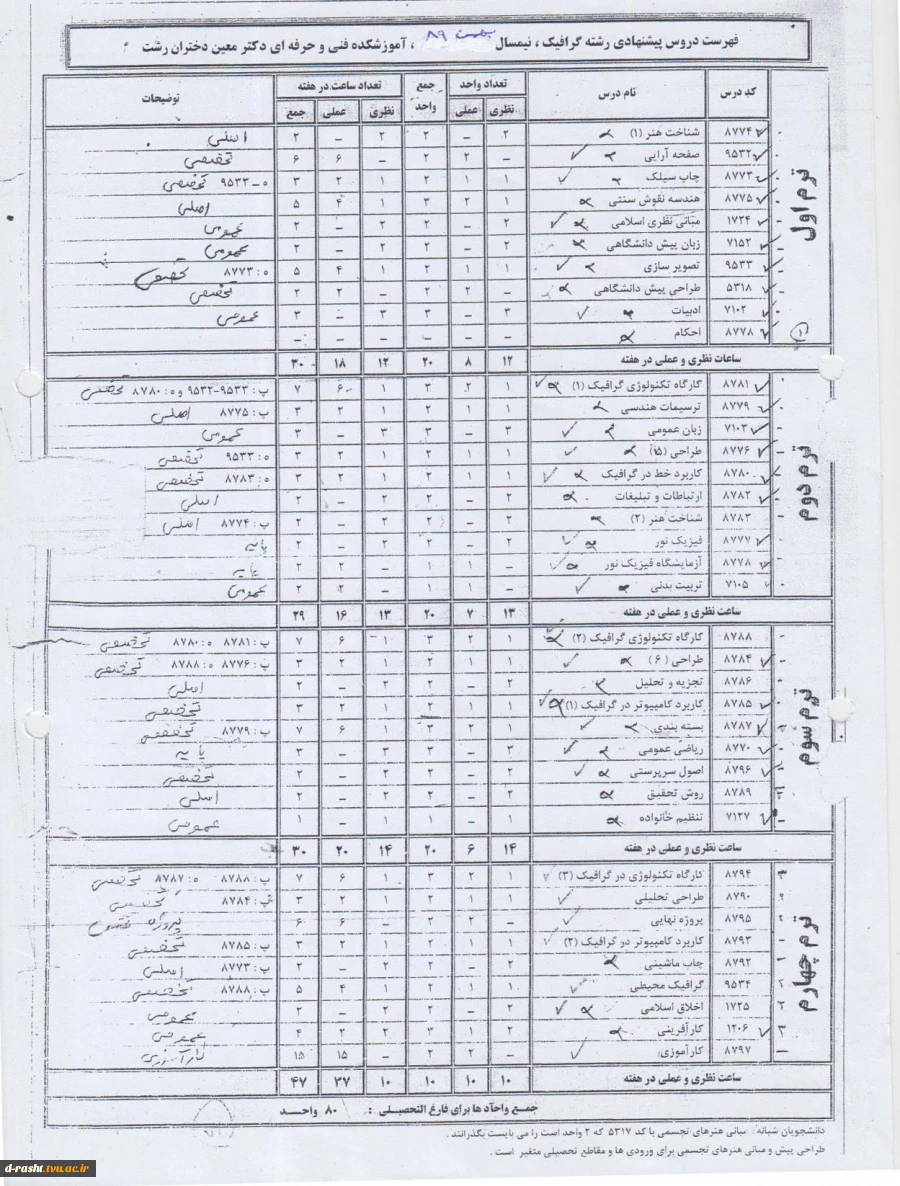 فهرست دروس پیشنهادی رشته گرافیک ، نیمسال بهمن ۸۹ ، آموزشکده فنی و حرفه ای دکتر معین دختران رشت
کد درس نام درس تعداد واحد جمع واحد تعداد ساعت در هفته توضیحات
نظری عملی نظری عملی جمع
ترم اول
۸۷۷۴ شناخت هنر (۱) ۲ – ۲ ۲ – ۲ اصلی
۹۵۳۲ صفحه آرایی – ۲ ۲ – ۶ ۶ تخصصی
۸۷۷۳ چاپ سیلک ۱ ۱ ۲ ۱ ۲ ۳ ه–۹۵۳۳ تخصصی
۸۷۷۵ هندسه نقوش سنتی ۱ ۲ ۳ ۱ ۴ ۵ اصلی
۱۷۲۴ مبانی نظری اسلامی ۲ – ۲ ۲ – ۲ عمومی
۷۱۵۲ زبان پیش دانشگاهی ۲ – ۲ ۲ – ۲ عمومی
۹۵۳۳ تصویر سازی ۱ ۱ ۲ ۱ ۴ ۵ ه: ۸۷۷۳ تخصصی
۵۳۱۸ طراحی پیش دانشگاهی – ۲ ۲ – ۲ ۲ تخصصی
۷۱۰۲ ادبیات ۳ – ۳ ۳ – ۳ عمومی
۸۷۷۸ احکام – – – – – –
ساعات نظری و عملی در هفته ۱۲ ۸ ۲۰ ۱۲ ۱۸ ۳۰
ترم دوم
۸۷۸۱ کارگاه تکنولوژی گرافیک (۱) ۱ ۲ ۳ ۱ ۶ ۷ پ: ۹۵۳۳–۹۵۳۲ و ه: ۸۷۸۰ تخصصی
۸۷۷۹ ترسیمات هندسی ۱ ۱ ۲ ۱ ۲ ۳ پ: ۸۷۷۵ اصلی
۷۱۰۳ زبان عمومی ۳ – ۳ ۳ – ۳ عمومی
۸۷۷۶ طراحی (۱۵) ۱ ۱ ۲ ۱ ۲ ۳ ه: ۹۵۳۳ تخصصی
۸۷۸۰ کاربرد خط در گرافیک ۱ ۱ ۲ ۱ ۲ ۳ ه: ۸۷۸۳ تخصصی
۸۷۸۲ ارتباطات و تبلیغات ۲ – ۲ ۲ – ۲ اصلی
۸۷۸۳ شناخت هنر (۲) ۲ – ۲ ۲ – ۲ پ: ۸۷۷۴ اصلی
۸۷۷۷ فیزیک نور ۲ – ۲ ۲ – ۲ پایه
۸۷۷۸ آزمایشگاه فیزیک نور – ۱ ۱ – ۲ ۲ پایه
۷۱۰۵ تربیت بدنی – ۱ ۱ – ۲ ۲ عمومی
ساعت نظری و عملی در هفته ۱۳ ۷ ۲۰ ۱۳ ۱۶ ۲۹
ترم سوم
۸۷۸۸ کارگاه تکنولوژی گرافیک (۲) ۱ ۲ ۳ ۱ ۶ ۷ پ: ۸۷۸۱ ه: ۸۷۸۰ تخصصی
۸۷۸۴ طراحی (۶) ۱ ۱ ۲ ۱ ۲ ۳ پ: ۸۷۷۶ ه: ۸۷۸۸ تخصصی
۸۷۸۶ تجزیه و تحلیل ۲ – ۲ ۲ – ۲ اصلی
۸۷۸۵ کاربرد کامپیوتر در گرافیک (۱) ۱ ۱ ۲ ۱ ۲ ۳ تخصصی
۸۷۸۷ بسته بندی ۱ ۲ ۳ ۱ ۶ ۷ پ: ۸۷۷۹ تخصصی
۸۷۷۰ ریاضی عمومی ۳ – ۳ ۳ – ۳ پایه
۸۷۹۶ اصول سرپرستی ۲ – ۲ ۲ – ۲ تخصصی
۸۷۸۹ روش تحقیق ۲ – ۲ ۲ – ۲ اصلی
۷۱۲۷ تنظیم خانواده ۱ – ۱ ۱ – ۱ عمومی
ساعت نظری و عملی در هفته ۱۴ ۶ ۲۰ ۱۴ ۲۰ ۳۰
ترم چهارم
۸۷۹۴ کارگاه تکنولوژی در گرافیک (۳) ۱ ۲ ۳ ۱ ۶ ۷ پ: ۸۷۸۸ ه: ۸۷۸۷ تخصصی
۸۷۹۰ طراحی تحلیلی ۱ ۱ ۲ ۱ ۲ ۳ پ: ۸۷۸۴ تخصصی
۸۷۹۵ پروژه نهایی – ۲ ۲ – ۶ ۶ پروژه
۸۷۹۳ کاربرد کامپیوتر در گرافیک (۲) ۱ ۱ ۲ ۱ ۲ ۳ پ: ۸۷۸۵ تخصصی
۸۷۹۲ چاپ ماشینی ۲ – ۲ ۲ – ۲ پ: ۸۷۷۳ اصلی
۹۵۳۴ گرافیک محیطی ۱ ۱ ۲ ۱ ۴ ۵ پ: ۸۷۸۸ تخصصی
۱۷۲۵ اخلاق اسلامی ۲ – ۲ ۲ – ۲ عمومی
۱۲۰۶ کارآفرینی ۲ ۱ ۳ ۲ ۲ ۴ عمومی
۸۷۹۷ کارآموزی – ۲ ۲ – ۱۵ ۱۵ کارآموزی
ساعت نظری و عملی در هفته ۱۰ ۱۰ ۱۰ ۱۰ ۳۷ ۴۷
جمع واحد ها برای فارغ التحصیلی : ۸۰ واحد
دانشجویان شبانه : مبانی هنرهای تجسمی با کد ۵۳۱۷ که ۲ واحد است را می بایست بگذرانند .
طراحی پیش و مبانی هنرهای تجسمی برای ورودی ها و مقاطع تحصیلی متغیر است .
d-rasht.tvu.ac.ir